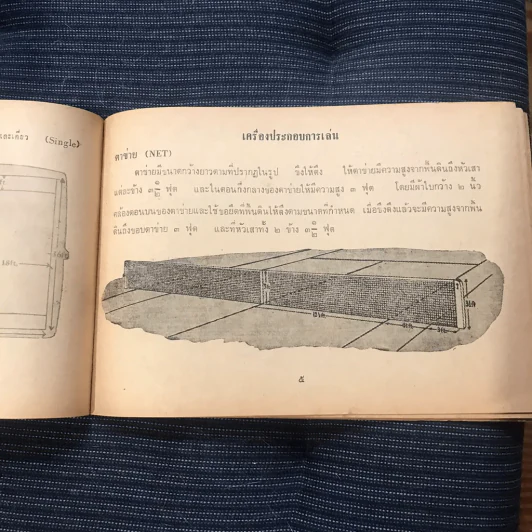 และเดี่ยว (Single)
เครื่องประกอบการเล่น
ตาข่าย (NET)
ตาข่ายมีขนาดกว้างยาวตามที่ปรากฏในรูป ขึงให้ตึง ให้ตาข่ายมีความสูงจากพื้นดินถึงหัวเสา
แต่ละข้าง ๓ ๑/๒ ฟุต และในตอนกึ่งกลางของตาข่ายให้มีความสูง ๓ ฟุต โดยมีผ้าใบกว้าง ๒ นิ้ว
คล้องตอนบนของตาข่ายและใช้ขอยึดที่พื้นดินให้ลึงตามขนาดที่กำหนด เมื่อขึงตึงแล้วจะมีความสูงจากพื้น
ดินถึงขอบตาข่าย ๓ ฟุต และที่หัวเสาทั้ง ๒ ข้าง ๓ ๑/๒ ฟุต
๕